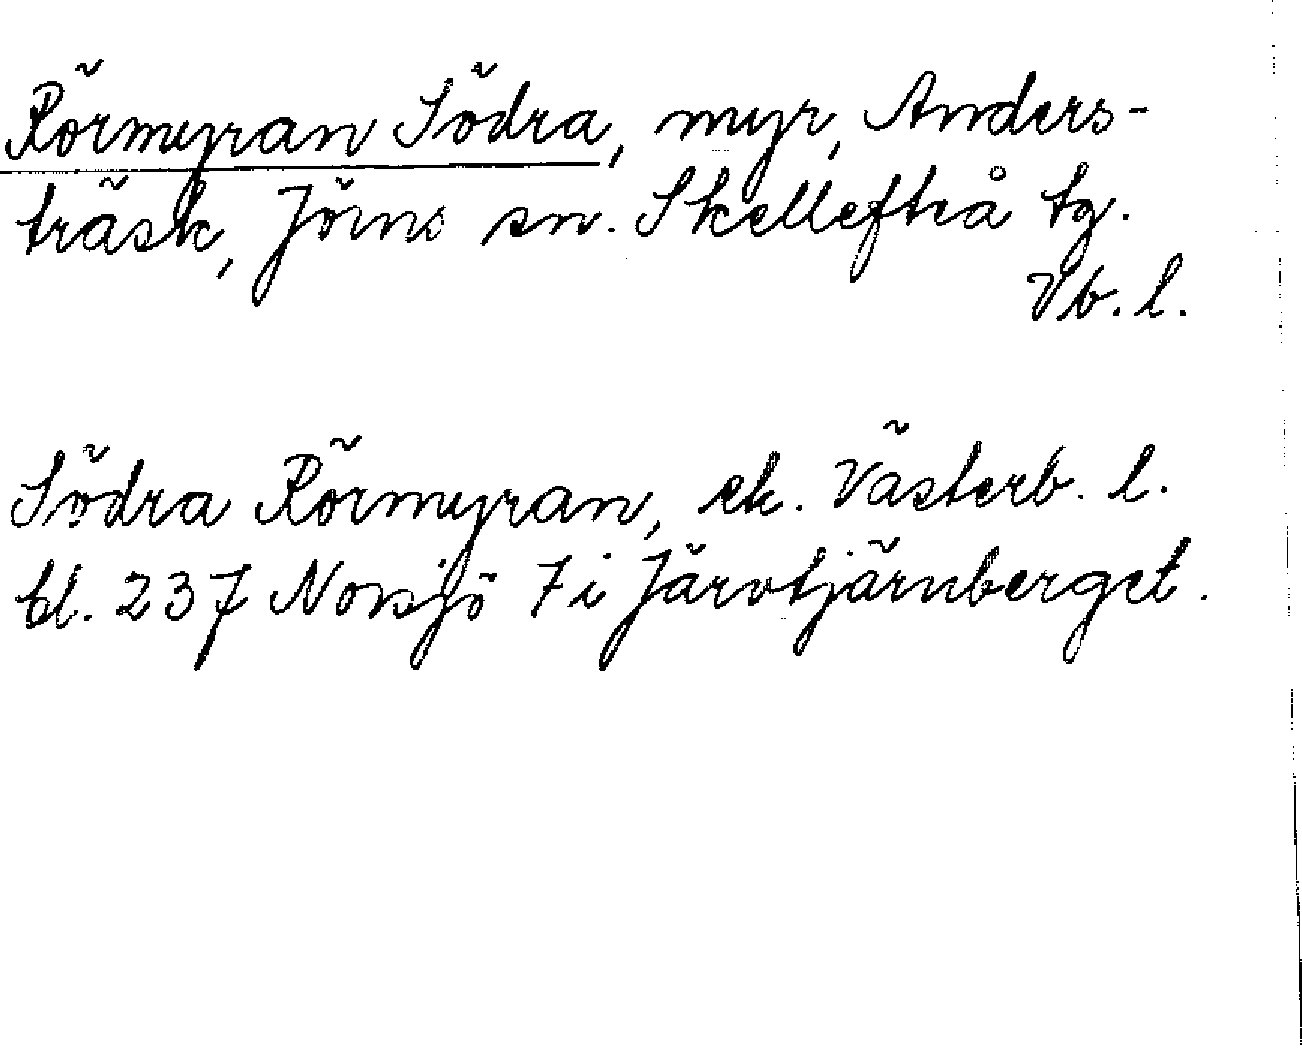 Rörmyran Södra, myr, Anders-
träsk, Jörns sn. Skellefteå tg.
Vb. l.
Södra Rörmyran, ek. Västerb. l.
bl. 237 Norsjö 7i Järvtjärnberget.